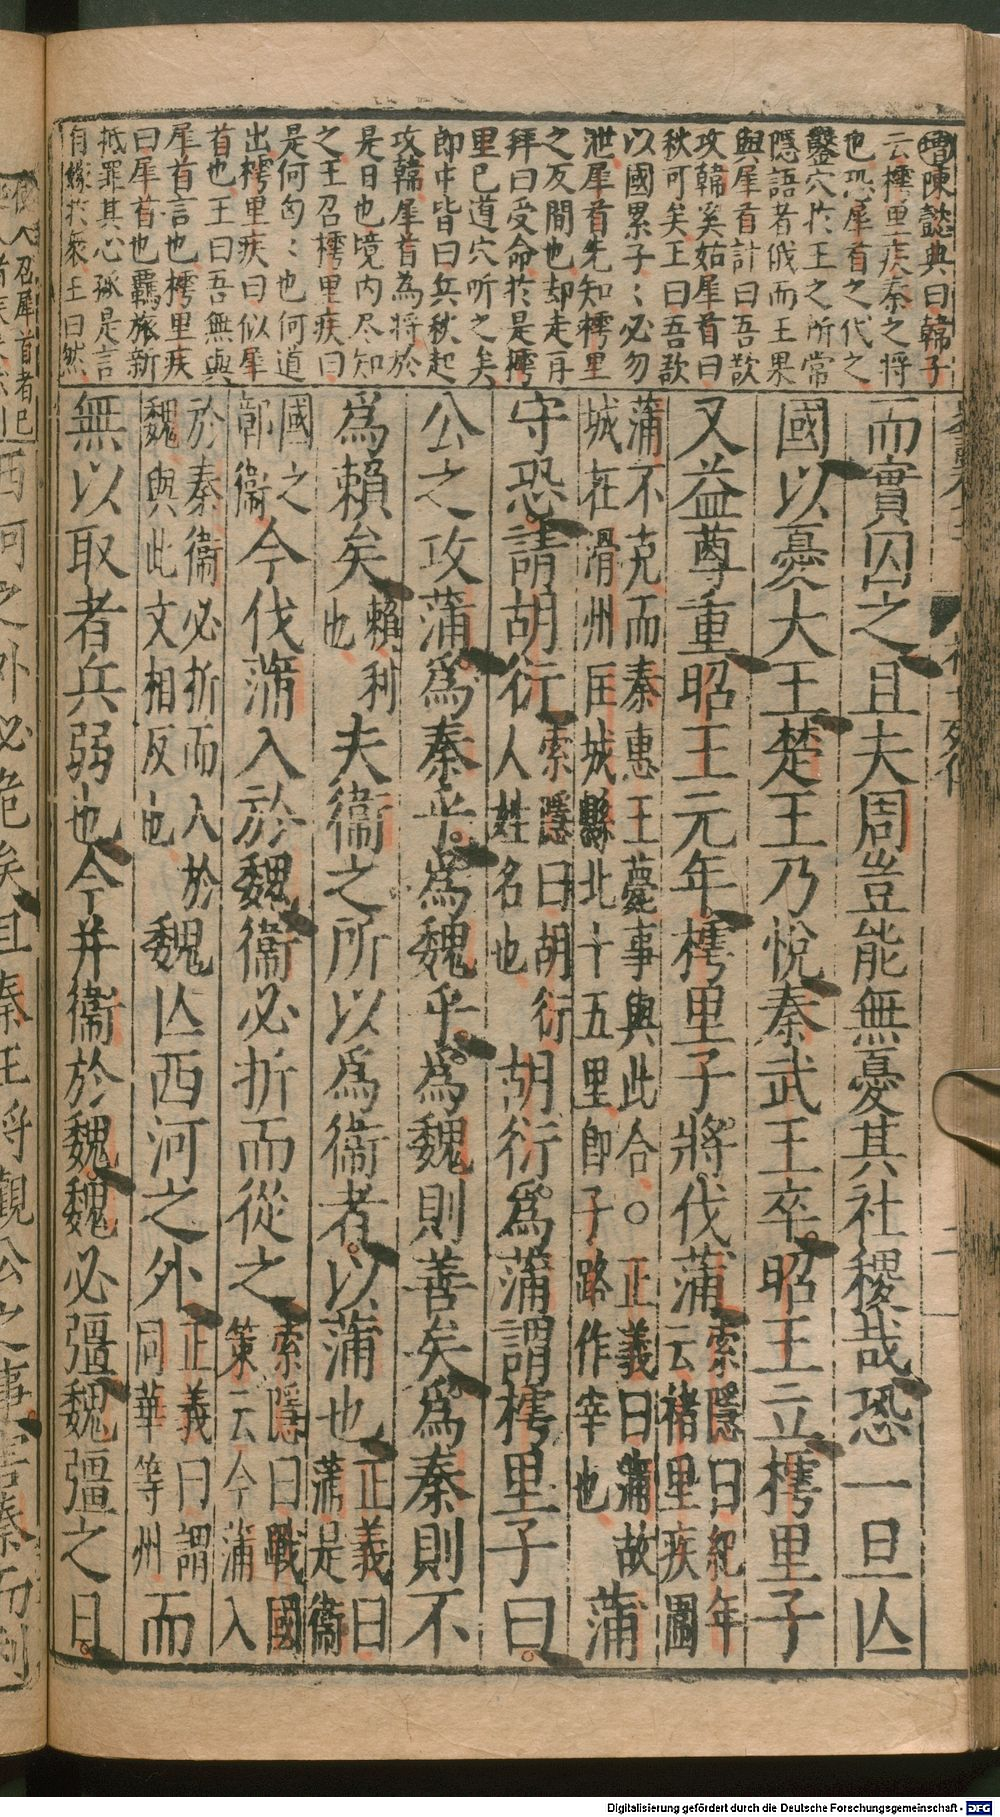 增陳懿典曰韓子
云樗里疾秦之將
也恐犀首之代之
鑿穴於王之所常
隱語者俄而王果
與犀首計曰吾欲
攻韓奚如犀首曰
秋可矣王曰吾欲
以國累子〻必勿
泄犀首先知樗里
之反間也却走再
拜曰受命於是樗
里已道穴所之矣
郎中皆曰兵秋起
攻韓犀首為將於
是日也境内尽知
之王召樗里疾曰
是何匈〻也何道
出樗里疾曰似犀
首也王曰吾無與
犀首言也樗里疾
曰犀首也羈旅新
抵罪其心孤是言
自嫁於衆王曰然
而實囚之且夫周豈能無憂其社稷哉恐一旦亾
國以憂大王楚王乃悅秦武王卒昭王立樗里子
又益尊重昭王元年樗里子將伐蒲索隱曰紀年
云褚里疾圍
蒲不克而秦惠王薨事與此合○正義曰蒲故
城在滑州匡城縣北十五里即子路作宰也蒲
守恐請胡衍索隱曰胡衍
人姓名也胡衍爲蒲謂樗里子曰
公之攻蒲爲秦乎爲魏乎爲魏則善矣爲秦則不
爲賴矣賴利
也夫衞之所以爲衞者以蒲也正義曰
蒲是衞
國之
鄣衞今伐蒲入於魏衞必折而從之索隱曰戰國
策云今蒲入
於秦衞必折而入於
魏與此文相反也魏亾西河之外正義曰謂
同華等州而
無以取者兵弱也今并衞於魏魏必彊魏彊之日
召犀首者已
西河之外必危矣且秦王將觀公之事害秦而利
Digitalisierung gefördert durch die Deutsche Forschungsgemeinschaft - DFG